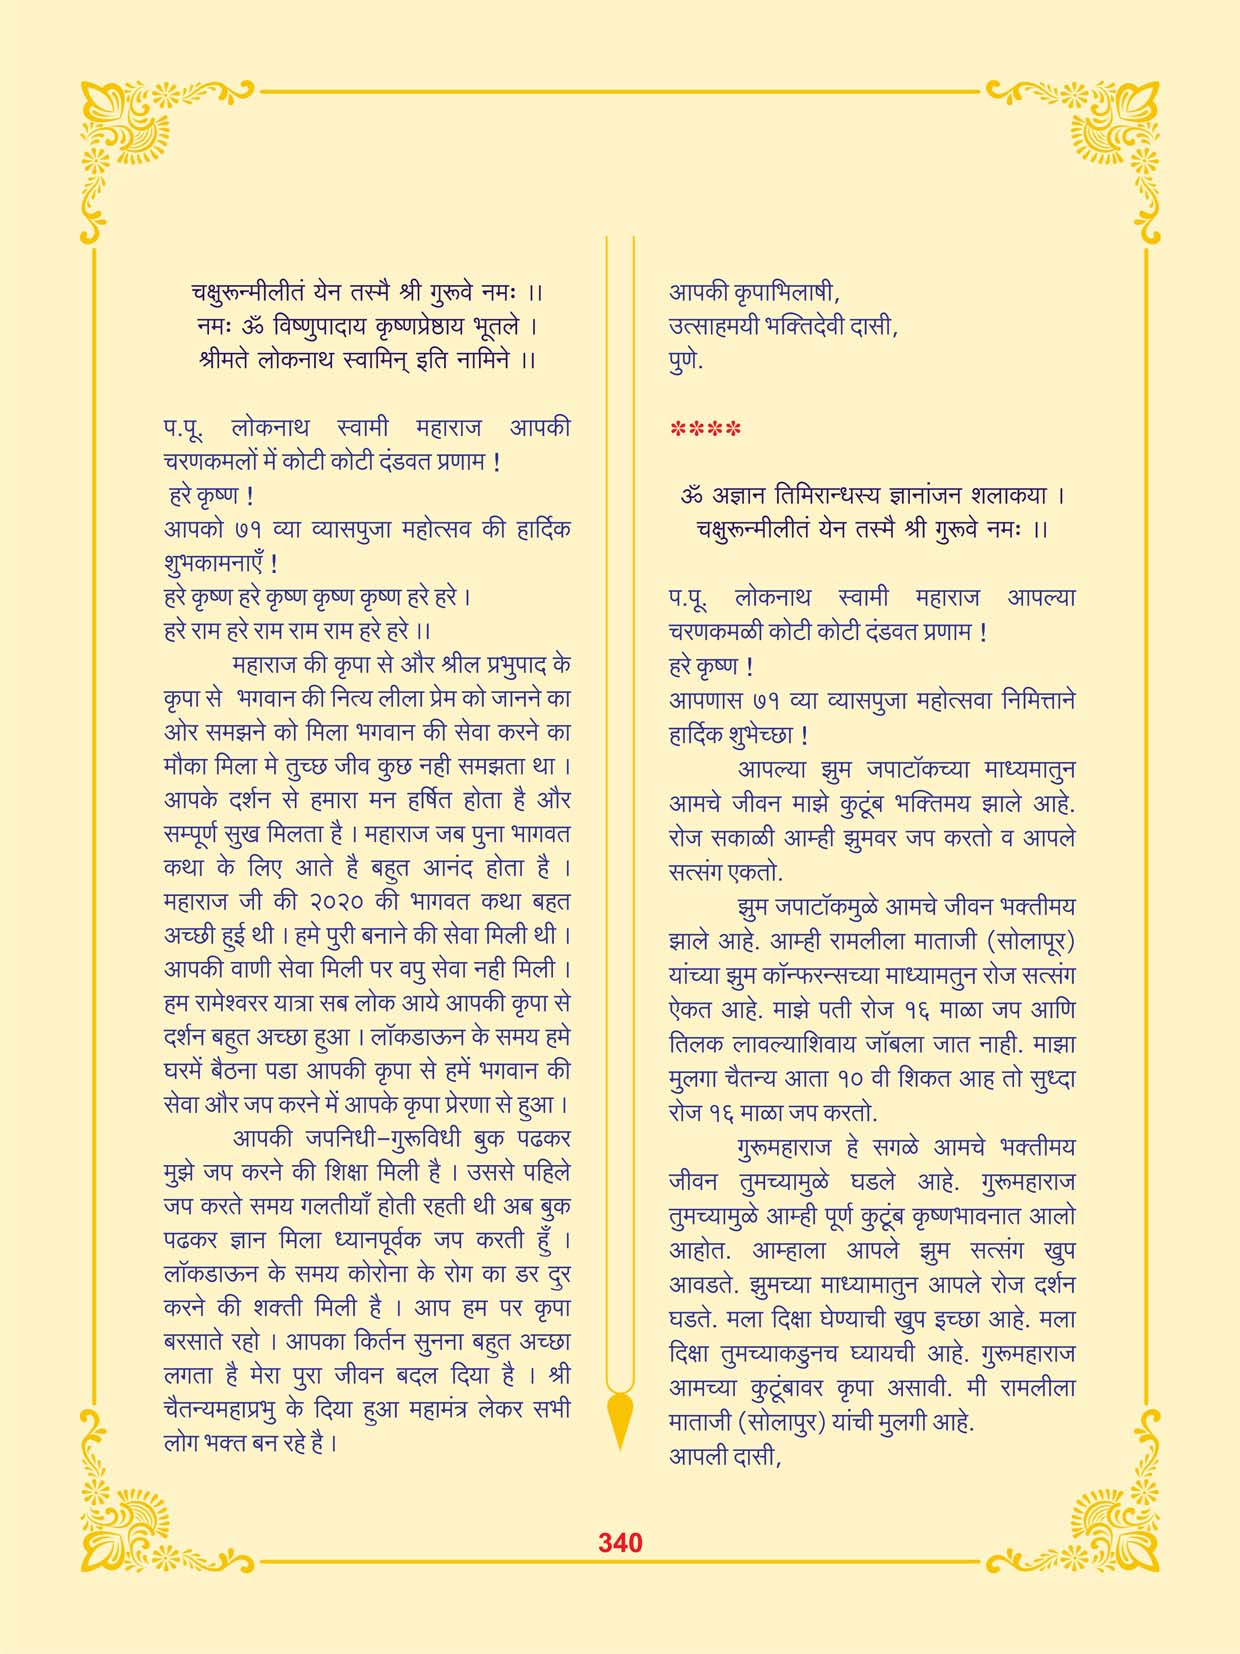 चक्षुरून्मीलीतं येन तस्मै श्री गुरूवे नमः ।।
नमः ॐ विष्णुपादाय कृष्णप्रेष्ठाय भूतले ।
श्रीमते लोकनाथ स्वामिन् इति नामिने ।।
प.पू. लोकनाथ स्वामी महाराज आपकी
चरणकमलों में कोटी कोटी दंडवत प्रणाम !
हरे कृष्ण !
आपको ७१ व्या व्यासपुजा महोत्सव की हार्दिक
शुभकामनाएँ !
हरे कृष्ण हरे कृष्ण कृष्ण कृष्ण हरे हरे ।
हरे राम हरे राम राम राम हरे हरे ।।
महाराज की कृपा से और श्रील प्रभुपाद के
कृपा से भगवान की नित्य लीला प्रेम को जानने का
ओर समझने को मिला भगवान की सेवा करने का
मौका मिला मे तुच्छ जीव कुछ नही समझता था ।
आपके दर्शन से हमारा मन हर्षित होता है और
सम्पूर्ण सुख मिलता है । महाराज जब पुना भागवत
कथा के लिए आते है बहुत आनंद होता है ।
महाराज जी की २०२० की भागवत कथा बहत
अच्छी हुई थी । हमे पुरी बनाने की सेवा मिली थी ।
आपकी वाणी सेवा मिली पर वपु सेवा नही मिली ।
हम रामेश्वरर यात्रा सब लोक आये आपकी कृपा से
दर्शन बहुत अच्छा हुआ । लॉकडाऊन के समय हमे
घरमें बैठना पडा आपकी कृपा से हमें भगवान की
सेवा और जप करने में आपके कृपा प्रेरणा से हुआ ।
आपकी जपनिधी-गुरूविधी बुक पढकर
मुझे जप करने की शिक्षा मिली है । उससे पहिले
जप करते समय गलतीयाँ होती रहती थी अब बुक
पढकर ज्ञान मिला ध्यानपूर्वक जप करती हुँ ।
लॉकडाऊन के समय कोरोना के रोग का डर दुर
करने की शक्ती मिली है । आप हम पर कृपा
बरसाते रहो । आपका किर्तन सुनना बहुत अच्छा
लगता है मेरा पुरा जीवन बदल दिया है । श्री
चैतन्यमहाप्रभु के दिया हुआ महामंत्र लेकर सभी
लोग भक्त बन रहे है ।
आपकी कृपाभिलाषी,
उत्साहमयी भक्तिदेवी दासी,
पुणे.
****
ॐ अज्ञान तिमिरान्धस्य ज्ञानांजन शलाकया ।
चक्षुरून्मीलीतं येन तस्मै श्री गुरूवे नमः ।।
प.पू. लोकनाथ स्वामी महाराज आपल्या
चरणकमळी कोटी कोटी दंडवत प्रणाम !
हरे कृष्ण !
आपणास ७१ व्या व्यासपुजा महोत्सवा निमित्ताने
हार्दिक शुभेच्छा !
आपल्या झुम जपाटॉकच्या माध्यमातुन
आमचे जीवन माझे कुटूंब भक्तिमय झाले आहे.
रोज सकाळी आम्ही झुमवर जप करतो व आपले
सत्संग एकतो.
झुम जपाटॉकमुळे आमचे जीवन भक्तीमय
झाले आहे. आम्ही रामलीला माताजी (सोलापूर)
यांच्या झुम कॉन्फरन्सच्या माध्यामतुन रोज सत्संग
ऐकत आहे. माझे पती रोज १६ माळा जप आणि
तिलक लावल्याशिवाय जॉबला जात नाही. माझा
मुलगा चैतन्य आता १० वी शिकत आह तो सुध्दा
रोज १६ माळा जप करतो.
गुरूमहाराज हे सगळे आमचे भक्तीमय
जीवन तुमच्यामुळे घडले आहे. गुरूमहाराज
तुमच्यामुळे आम्ही पूर्ण कुटूंब कृष्णभावनात आलो
आहोत. आम्हाला आपले झुम सत्संग खुप
आवडते. झुमच्या माध्यामातुन आपले रोज दर्शन
घडते. मला दिक्षा घेण्याची खुप इच्छा आहे. मला
दिक्षा तुमच्याकडुनच घ्यायची आहे. गुरूमहाराज
आमच्या कुटूंबावर कृपा असावी. मी रामलीला
माताजी (सोलापुर) यांची मुलगी आहे.
आपली दासी,
340